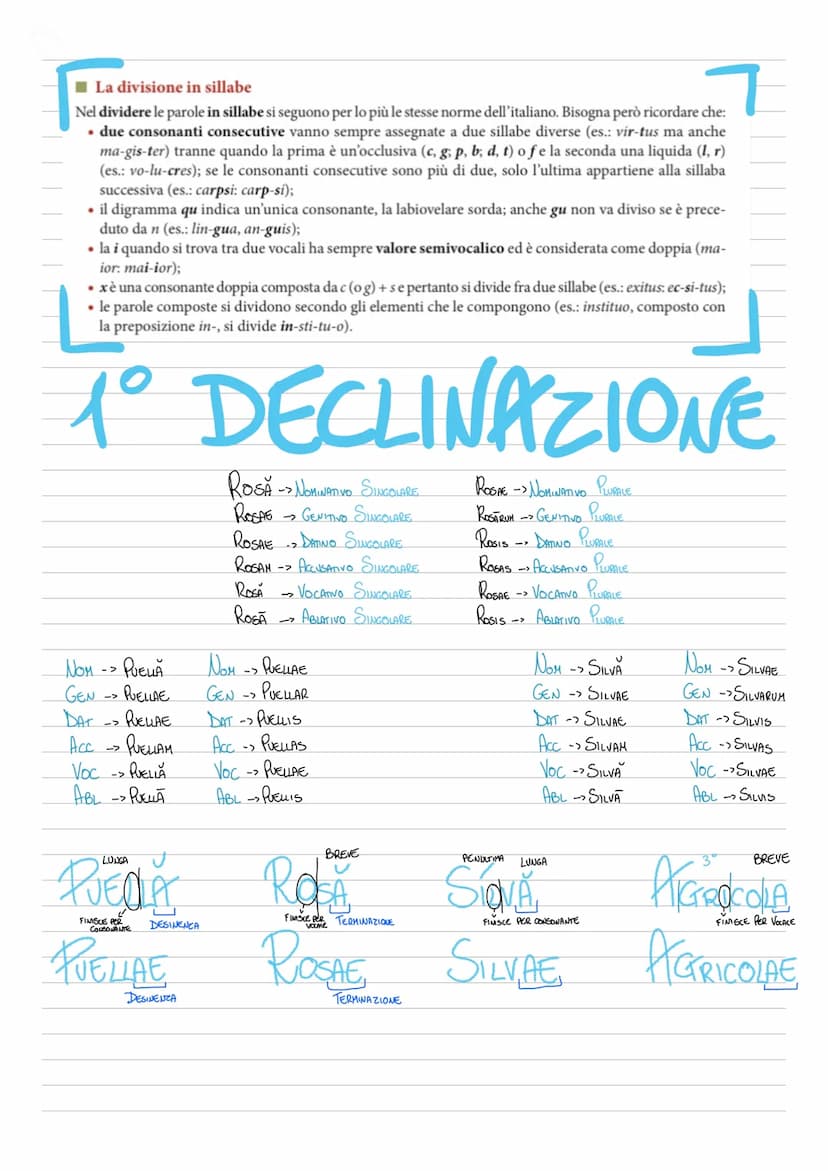 La divisione in sillabe
Nel dividere le parole in sillabe si seguono per lo più le stesse norme dell'italiano. Bisogna però ricordare che:
• due consonanti consecutive vanno sempre assegnate a due sillabe diverse (es.: vir-tus ma anche
ma-gis-ter) tranne quando la prima è un'occlusiva (c, g; p, b; d, t) o f e la seconda una liquida (l, r)
(es.: vo-lu-cres); se le consonanti consecutive sono più di due, solo l'ultima appartiene alla sillaba
successiva (es.: carpsi: carp-si);
• il digramma qu indica un'unica consonante, la labiovelare sorda; anche gu non va diviso se è prece-
duto da n (es.: lin-gua, an-guis);
• la i quando si trova tra due vocali ha sempre valore semivocalico ed è considerata come doppia (ma-
ior: mai-ior);
• x è una consonante doppia composta da c (o g) + s e pertanto si divide fra due sillabe (es.: exitus: ec-si-tus);
• le parole composte si dividono secondo gli elementi che le compongono (es.: instituo, composto con
la preposizione in-, si divide in-sti-tu-o).
1° DECLINAZIONE
ROSĂ -> NOMINATIVO SINGOLARE ROSAE -> NOMINATIVO PLURALE
ROSAE -> GENITIVO SINGOLARE ROSĀRUM -> GENITIVO PLURALE
ROSAE -> DATIVO SINGOLARE ROSIS -> DATIVO PLURALE
ROSAM -> ACCUSATIVO SINGOLARE ROSAS -> ACCUSATIVO PLURALE
ROSĂ -> VOCATIVO SINGOLARE ROSAE -> VOCATIVO PLURALE
ROSĀ -> ABLATIVO SINGOLARE ROSIS -> ABLATIVO PLURALE
NOM -> PUELLĂ NOM -> PUELLAE NOM -> SILVĂ NOM -> SILVAE
GEN -> PUELLAE GEN -> PUELLAR GEN -> SILVAE GEN -> SILVARUM
DAT -> PUELLAE DAT -> PUELLIS DAT -> SILVAE DAT -> SILVIS
ACC -> PUELLAM ACC -> PUELLAS ACC -> SILVAM ACC -> SILVAS
VOC -> PUELLĂ VOC -> PUELLAE VOC -> SILVĂ VOC -> SILVAE
ABL -> PUELLĀ ABL -> PUELLIS ABL -> SILVĀ ABL -> SILVIS
LUNGA BREVE PENULTIMA LUNGA 3° BREVE
PUELLĂ ROSĂ SILVĂ AGRICOLA
FINISCE PER CONSONANTE DESINENZA FINISCE PER VOCALE TERMINAZIONE FINISCE PER CONSONANTE FINISCE PER VOCALE
PUELLAE ROSAE SILVAE AGRICOLAE
DESINENZA TERMINAZIONE